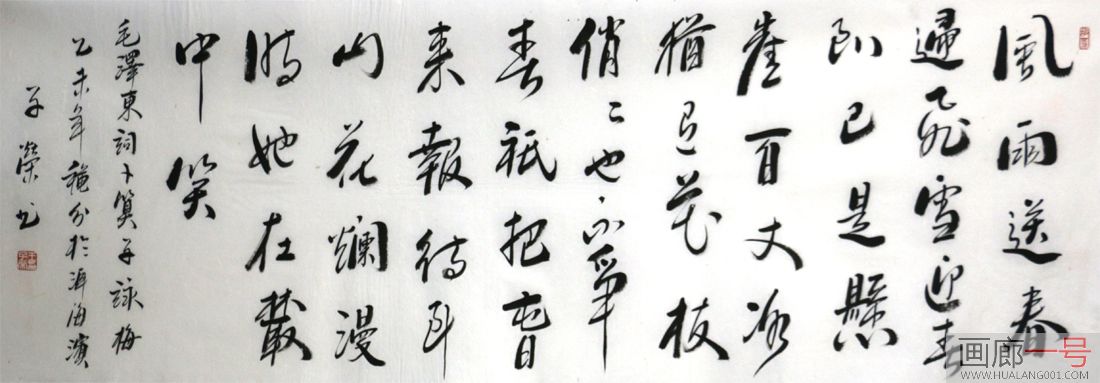 風雨送春
歸飛雪迎春
到已是懸
崖百丈冰
猶有花枝
俏〻也不爭
春祇把旾
来報待到
山花爛漫
時她在叢
中笑
毛澤東詞卜算子詠梅
乙未年穐分於海濱
子榮书
画廊一号
WWW.HUALANG001.COM